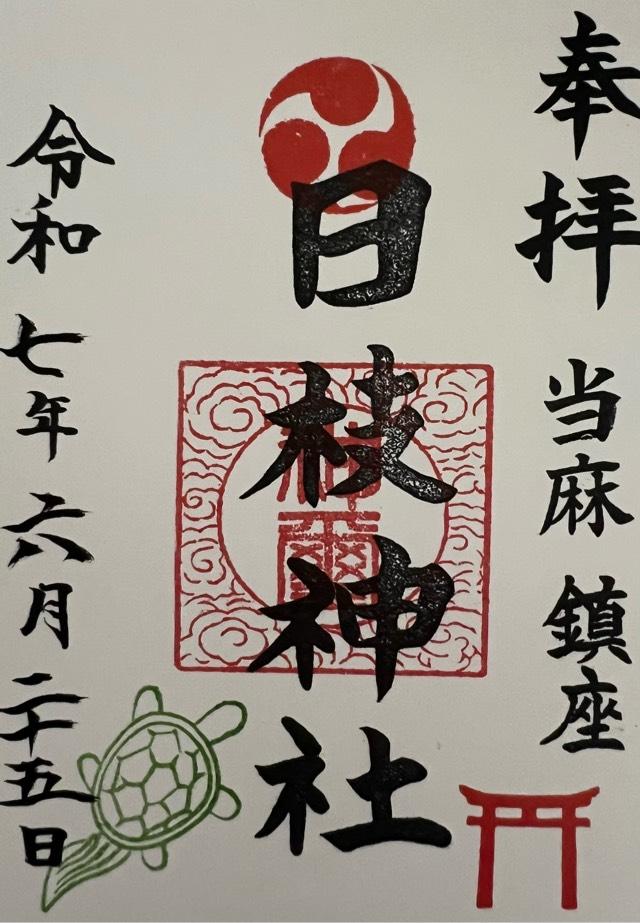 奉拝
当麻鎮座
日枝神社
神璽
令和七年六月二十五日